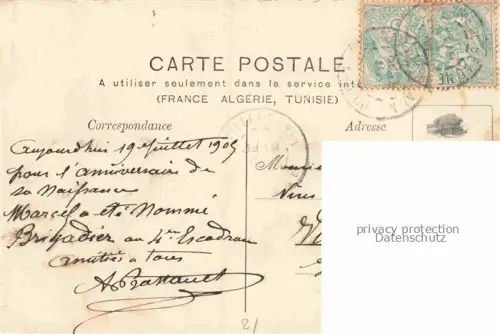 CARTE POSTALE
A utiliser seulement dans le service
(FRANCE ALGÉRIE, TUNISIE)
Correspondance
Adresse
Aujourd'hui 19 Juillet 1905
pour l'anniversaire de
sa Naissance
Marcel a été Nommé
Brigadier au 4ème Escadron
amitiés a tous
privacy protection
Datenschutz
21